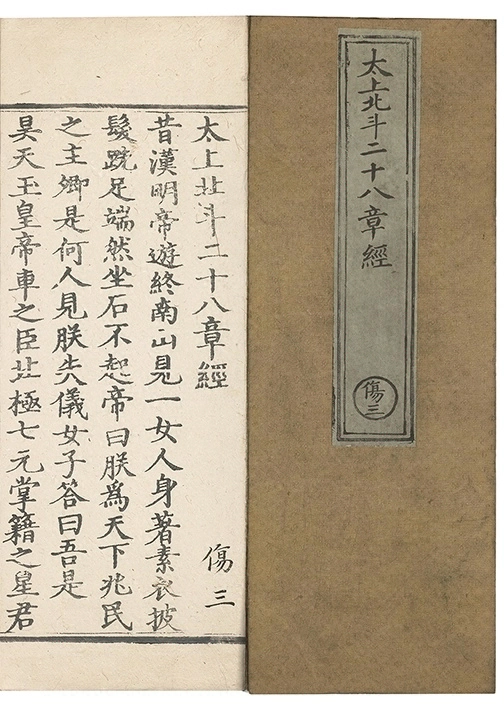 太上北斗二十八章經
傷三
太上北斗二十八章經
傷三
昔漢明帝遊終南山見一女人身著素衣披
髮跣足端然坐石不起帝曰朕爲天下兆民
之主卿是何人見朕失儀女子答曰吾是
昊天玉皇帝車之臣北極七元掌籍之星君